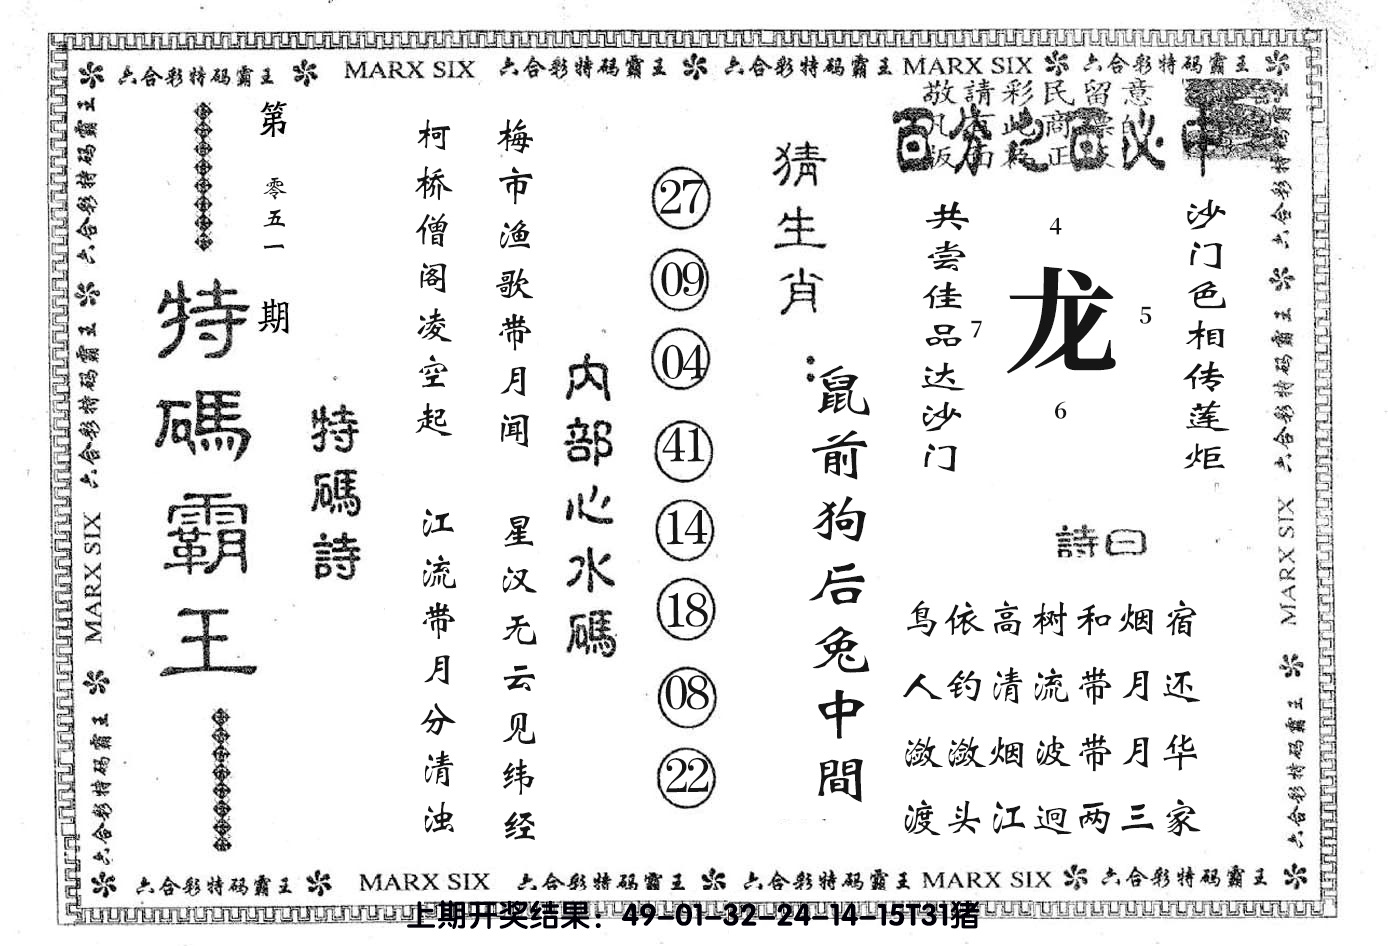 六合彩特码霸王 MARX SIX 六合彩特码霸王 六合彩特码霸王 MARX SIX 六合彩特码霸王
六合彩特码霸王 六合彩特码霸王 MARX SIX 六合彩特码霸王
第零五一期
特碼霸王
特碼詩
柯桥僧阁凌空起
江流带月分清浊
梅市渔歌带月闻
星汉无云见纬经
内部心水碼
27
09
04
41
14
18
08
22
猜生肖:
鼠前狗后兔中間
敬請彩民留意
百分之百必中
共尝佳品达沙门
4
7
龙
5
6
沙门色相传莲炬
詩曰
鸟依高树和烟宿
人钓清流带月还
潋潋烟波带月华
渡头江迥两三家
六合彩特码霸王 六合彩特码霸王 MARX SIX 六合彩特码霸王
六合彩特码霸王 MARX SIX 六合彩特码霸王 六合彩特码霸王 MARX SIX 六合彩特码霸王
上期开奖结果：49-01-32-24-14-15T31猪